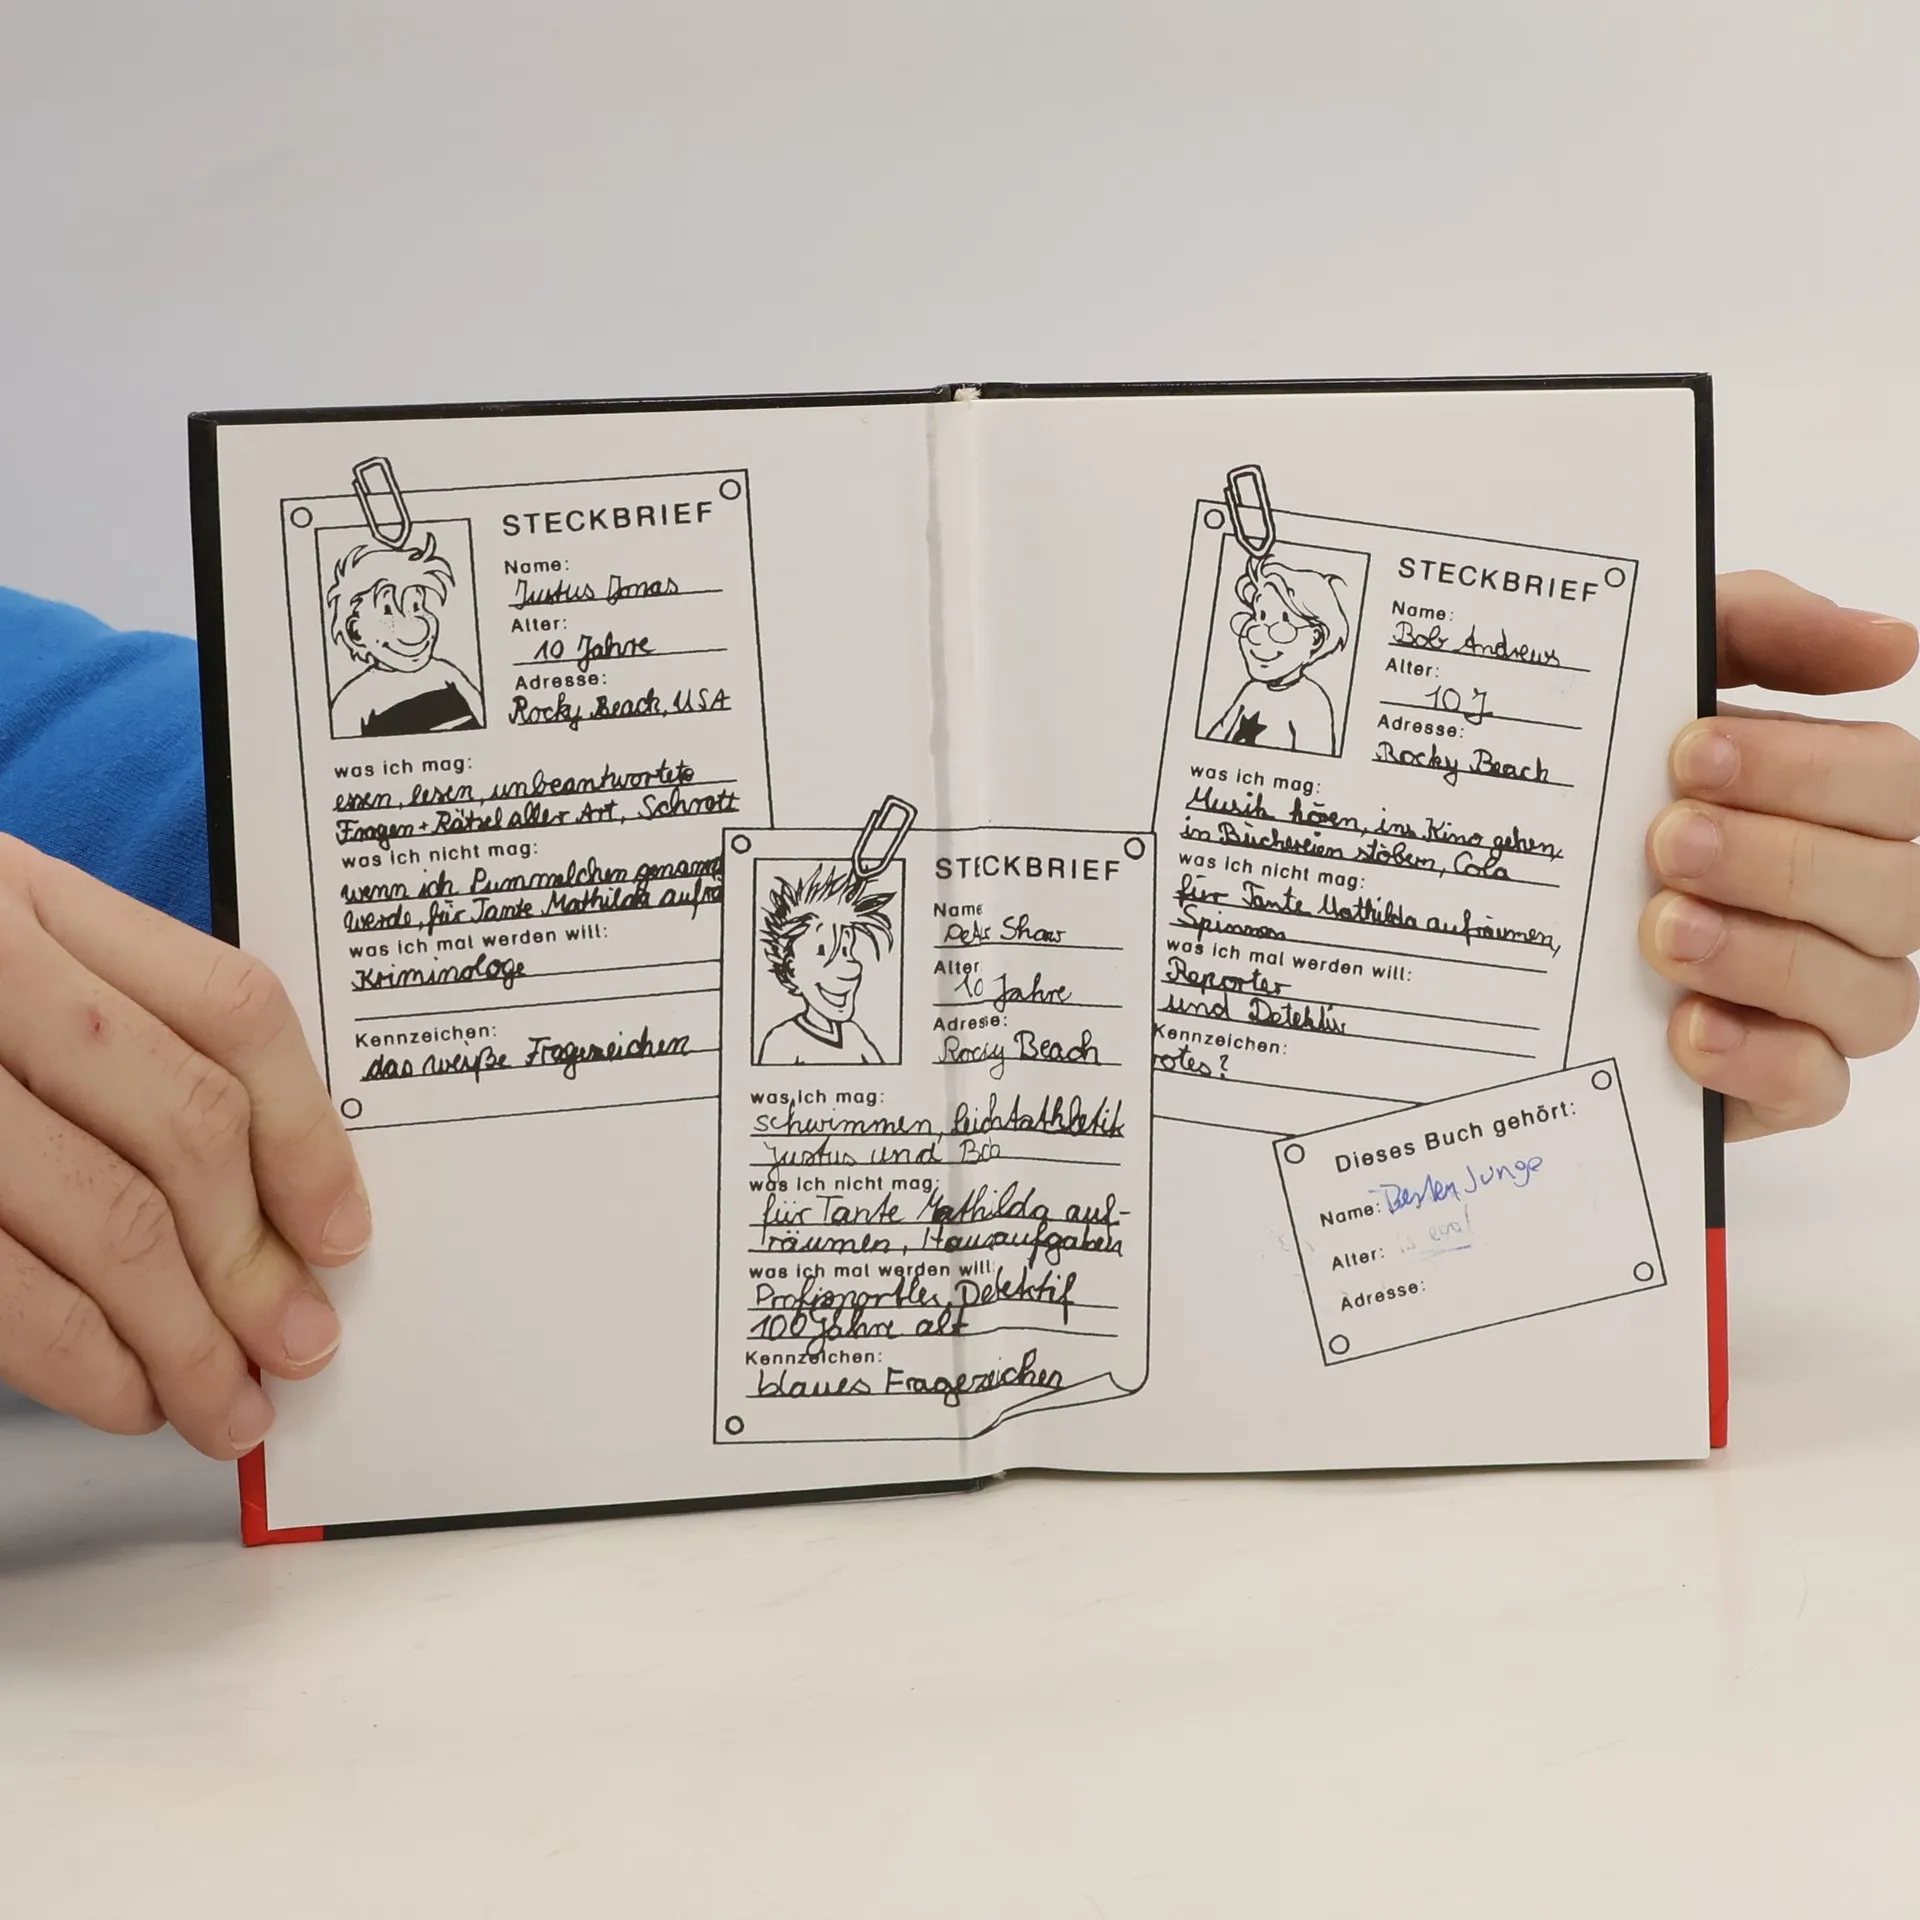 STECKBRIEF
Name:
Justus Jonas
Alter:
10 Jahre
Adresse:
Rocky Beach, USA
was ich mag:
essen, lesen, unbeantwortete
Fragen + Rätsel aller Art, Schrott
was ich nicht mag:
wenn ich Pummelchen genannt
werde, für Tante Mathilda aufrä
was ich mal werden will:
Kriminologe
Kennzeichen:
das weiße Fragezeichen
STECKBRIEF
Name
Peter Shaw
Alter
10 Jahre
Adresse:
Rocky Beach
was ich mag:
schwimmen, Leichtathletik
Justus und Bob
was ich nicht mag:
für Tante Mathilda auf-
räumen, Hausaufgaben
was ich mal werden will:
Profisportler, Detektif
100 Jahre alt
Kennzeichen:
blaues Fragezeichen
STECKBRIEF
Name:
Bob Andrews
Alter:
10 J
Adresse:
Rocky Beach
was ich mag:
Musik hören, ins Kino gehen,
in Büchereien stöbern, Cola
was ich nicht mag:
für Tante Mathilda aufräumen,
Spinnen
was ich mal werden will:
Reporter
und Detektiv
Kennzeichen:
rotes ?
Dieses Buch gehört:
Name: Junge
Alter:
Adresse: